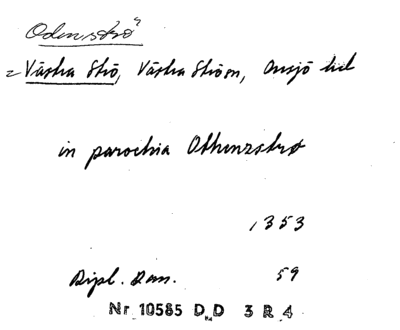 Odenströ
= Västra Strö, Västra Ström, Onsjö hd
in parochia Othenzstrø
1353
Dipl. Dan. 59
Nr 10585 D D 3 R 4